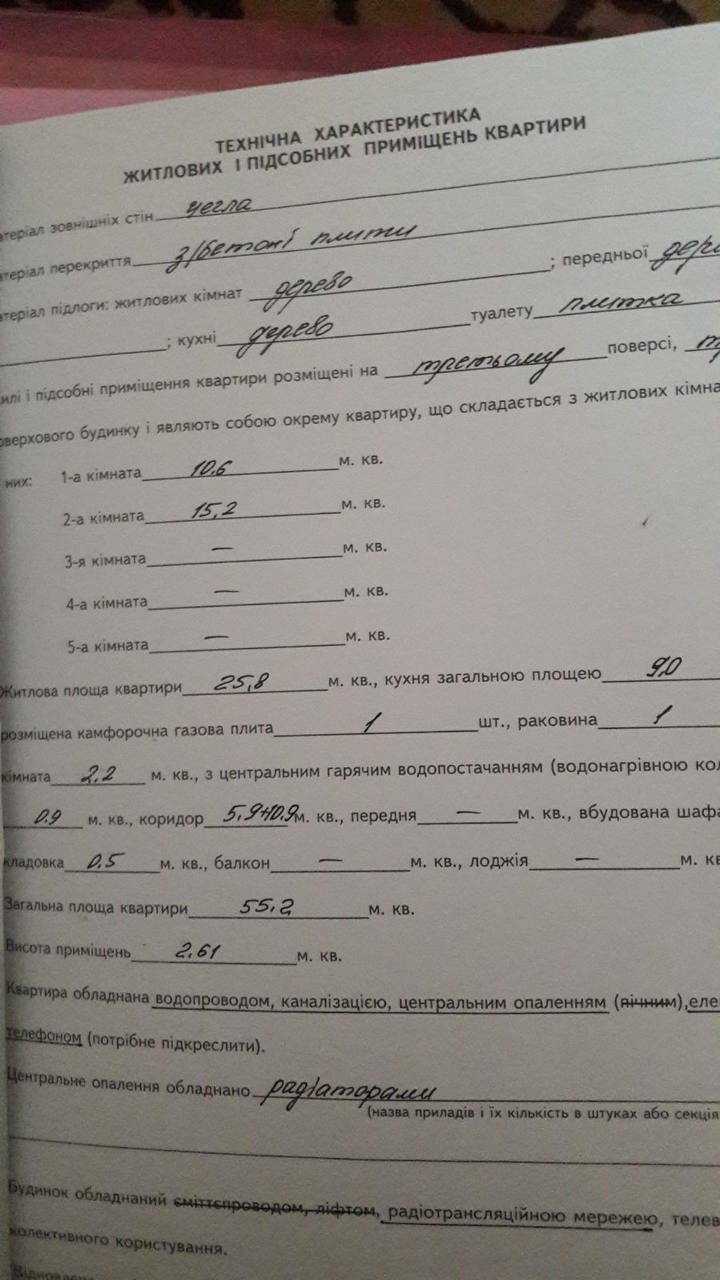 ТЕХНІЧНА ХАРАКТЕРИСТИКА
ЖИТЛОВИХ І ПІДСОБНИХ ПРИМІЩЕНЬ КВАРТИРИ
атеріал зовнішніх стін цегла
атеріал перекриття з/бетоні плити
атеріал підлоги: житлових кімнат дерево ; передньої дере
; кухні дерево туалету плитка
илі і підсобні приміщення квартири розміщені на третьому поверсі,
оверхового будинку і являють собою окрему квартиру, що складається з житлових кімна
них: 1-а кімната 10.6 м. кв.
2-а кімната 15,2 м. кв.
3-я кімната — м. кв.
4-а кімната — м. кв.
5-а кімната — м. кв.
Житлова площа квартири 25,8 м. кв., кухня загальною площею 9,0
розміщена камфорочна газова плита 1 шт., раковина 1
кімната 2,2 м. кв., з центральним гарячим водопостачанням (водонагрівною кол
0.9 м. кв., коридор 5,9+10.9 м. кв., передня — м. кв., вбудована шафа
кладовка 0.5 м. кв., балкон — м. кв., лоджія — м. кв
Загальна площа квартири 55,2 м. кв.
Висота приміщень 2,61 м. кв.
Квартира обладнана водопроводом, каналізацією, центральним опаленням (пічним), еле
телефоном (потрібне підкреслити).
Центральне опалення обладнано радіаторами
(назва приладів і їх кількість в штуках або секція
Будинок обладнаний сміттєпроводом, ліфтом, радіотрансляційною мережею, телев
колективного користування.